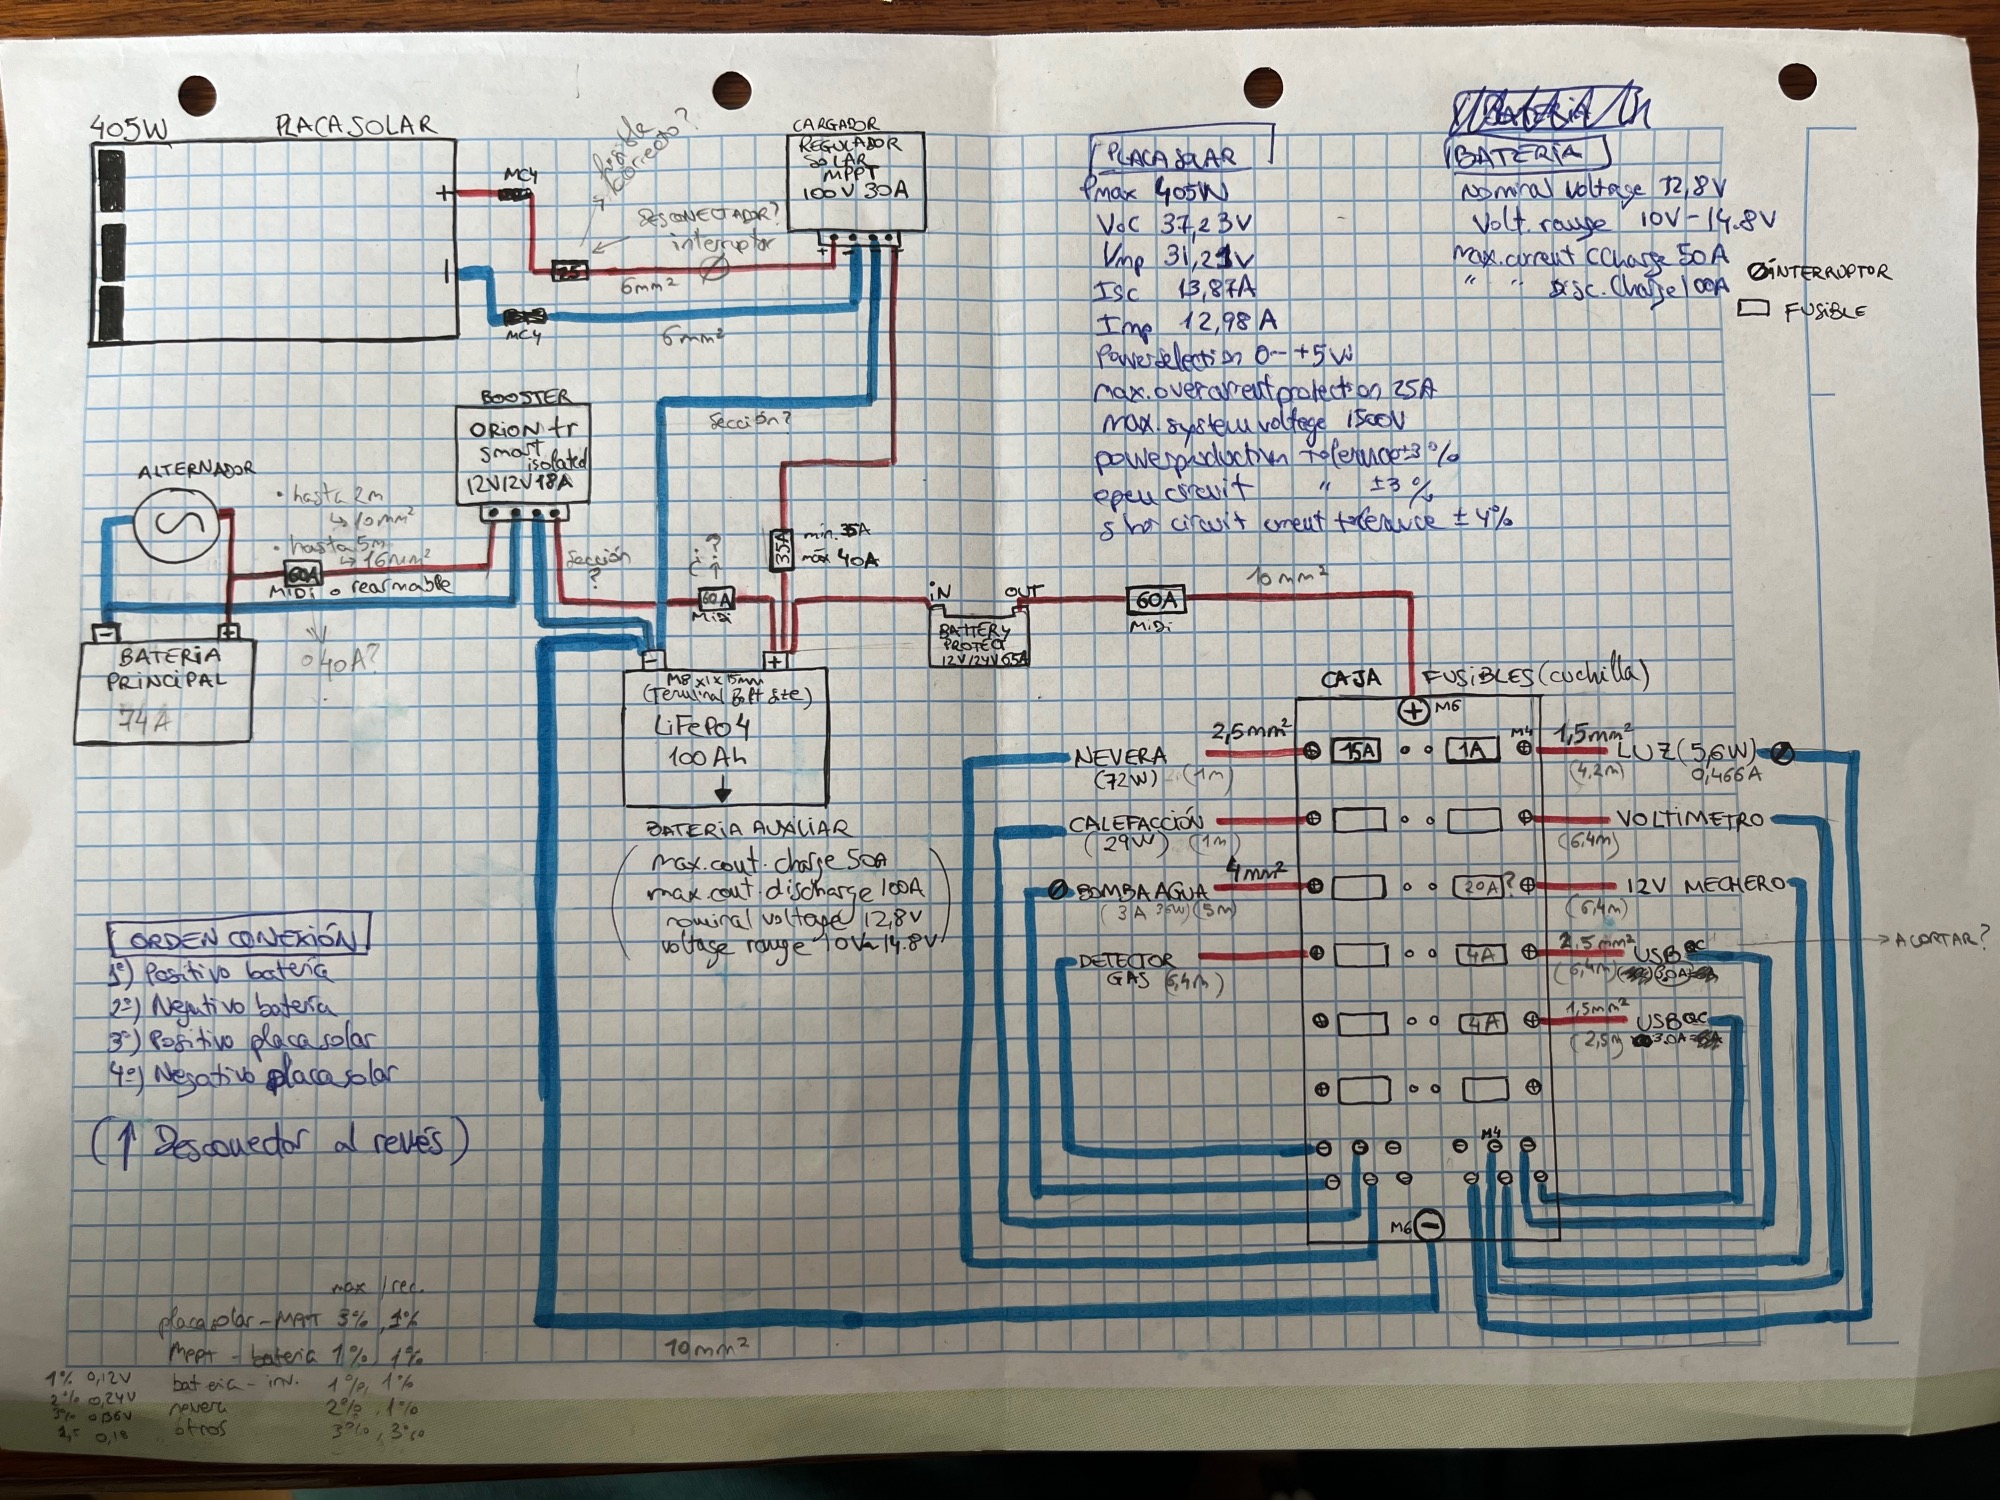 405W PLACA SOLAR
MC4
+
-
MC4
25
6mm²
6mm²
fusible
correcto?
DESCONECTADOR?
interruptor
CARGADOR
REGULADOR
SOLAR
MPPT
100V 30A
+ -
PLACA SOLAR
Pmax 405W
Voc 37,23V
Vmp 31,21V
Isc 13,87A
Imp 12,98A
Powerselection 0~+5W
max.overcurrent protection 25A
max. system voltage 1500V
power production tolerance ±3%
open circuit " ±3%
short circuit current tolerance ±4%
BATERIA
Nominal voltage 12,8V
Volt. range 10V-14.8V
max.current CCharge 50A
" " disc.Charge 100A
INTERRUPTOR
FUSIBLE
BOOSTER
ORION tr
smart
isolated
12V/12V 18A
Sección?
ALTERNADOR
• hasta 2m
↳ 10mm²
• hasta 5m
↳ 16mm²
60A
MIDI o rearmable
o 40A?
Sección
?
¿?
60A
MIDI
35A
min. 35A
máx 40A
- +
BATERIA
PRINCIPAL
74A
- +
M8 x1x15mm
(Terminal Bolt Size)
LiFePO4
100Ah
BATERIA AUXILIAR
max.cout.charge 50A
max.cout.discharge 100A
nominal voltage 12,8V
voltage range 10V~14.8V
IN OUT
BATTERY
PROTECT
12V/24V 65A
60A
MIDI
10mm²
CAJA FUSIBLES (cuchilla)
+ M6
NEVERA 2,5mm² 15A 1A M4 1,5mm² LUZ (5,6W)
(72W) (1m) (4,2m) 0,466A
CALEFACCIÓN VOLTIMETRO
(29W) (1m) (6,4m)
BOMBA AGUA 4mm² 20A? 12V MECHERO
(3A 36W) (5m) (6,4m)
DETECTOR 4A 2,5mm² USB QC → ACORTAR?
GAS (6,4m) (6,4m) 3.0A
4A 1,5mm² USB QC
(2,5m) 3.0A
M4
M6 -
10mm²
ORDEN CONEXIÓN
1º) Positivo batería
2º) Negativo batería
3º) Positivo placa solar
4º) Negativo placa solar
(↑ Desconectar al revés)
max / rec.
placa solar - MPPT 3%, 1%
MPPT - bateria 1%, 1%
bateria - inv. 1%, 1%
nevera 2%, 1%
otros 3%, 3%
1% 0,12V
2% 0,24V
3% 0,36V
1,5 0,18